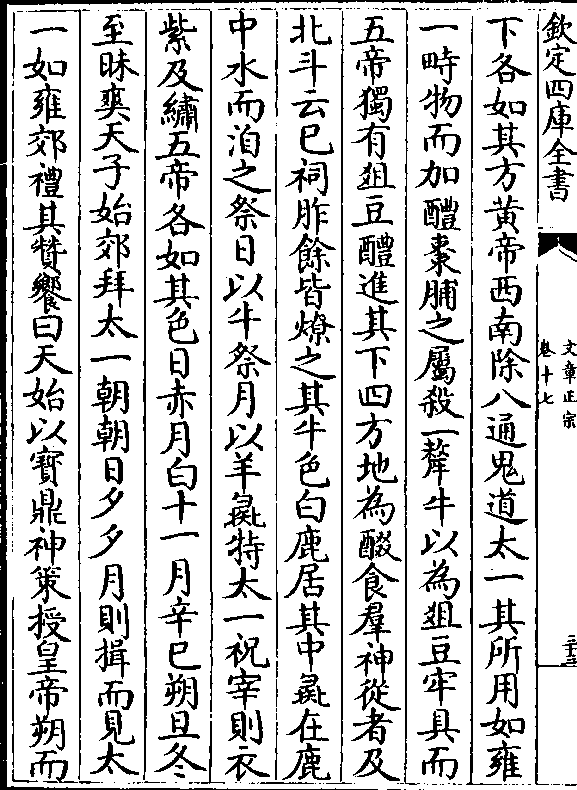 欽定四庫全書
文章正宗
卷十七
下各如其方黃帝西南除八通鬼道太一其所用如雍
一畤物而加醴棗脯之屬殺一犛牛以為爼豆牢具而
五帝獨有爼豆醴進其下四方地為醊食羣神從者及
北斗云已祠胙餘皆燎之其牛色白鹿居其中彘在鹿
中水而洎之祭日以牛祭月以羊彘特太一祝宰則衣
紫及繡五帝各如其色日赤月白十一月辛巳朔旦冬
至昧爽天子始郊拜太一朝朝日夕夕月則揖而見太
一如雍郊禮其贊饗曰天始以寳鼎神策授皇帝朔而